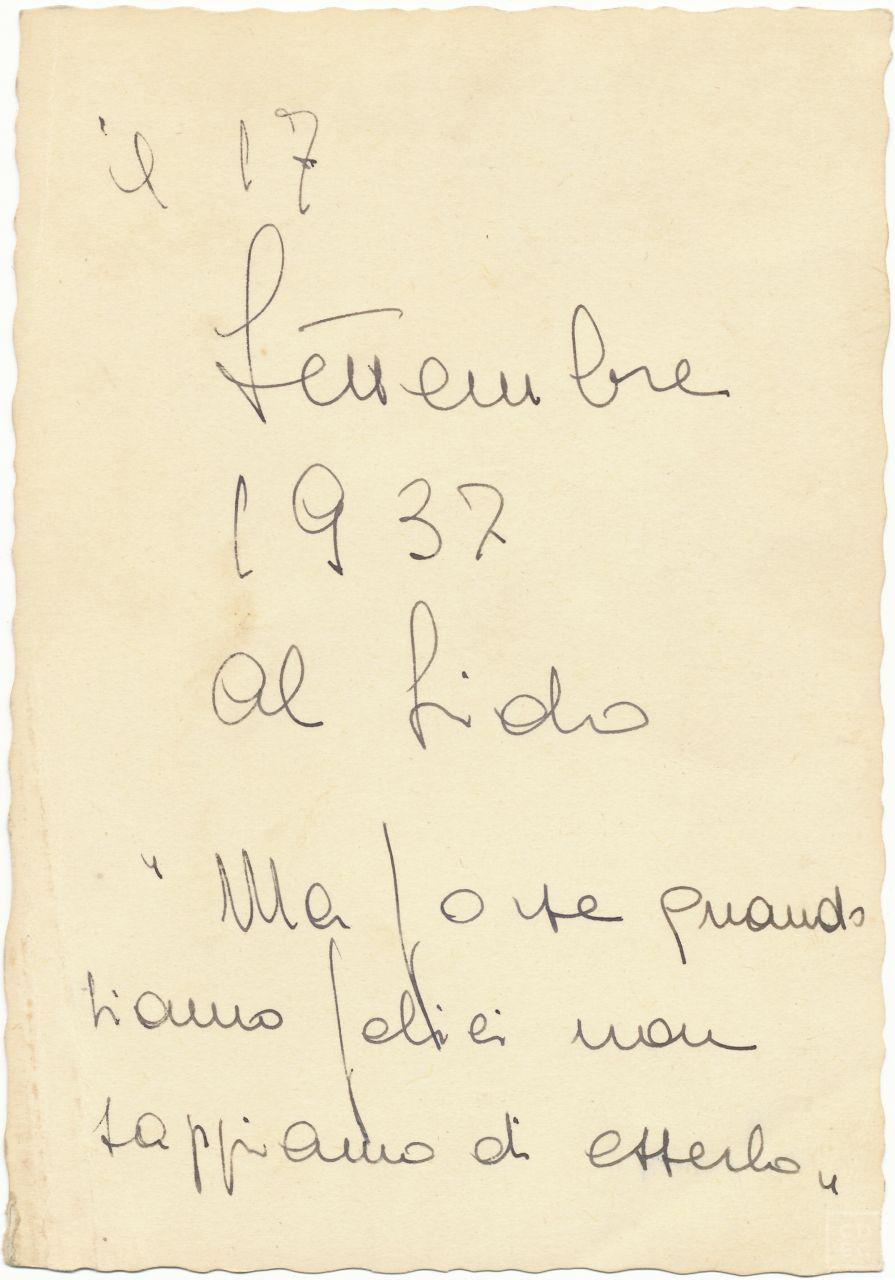 il 17
Settembre
1937
al Lido
"Ma forse quando
siamo felici non
sappiamo di esserlo„